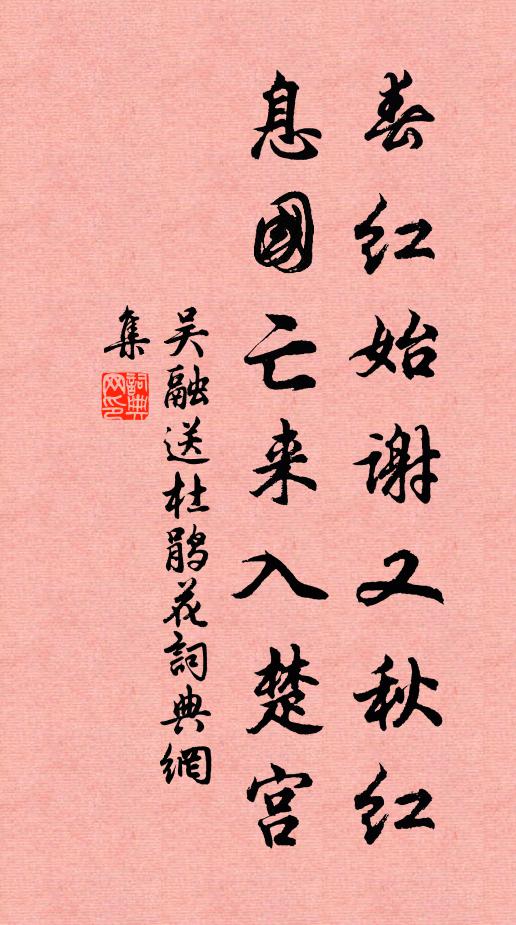 春红始谢又秋红
息國亡来入楚宫
吴融送杜鹃花詞典網
集
詞典
网印